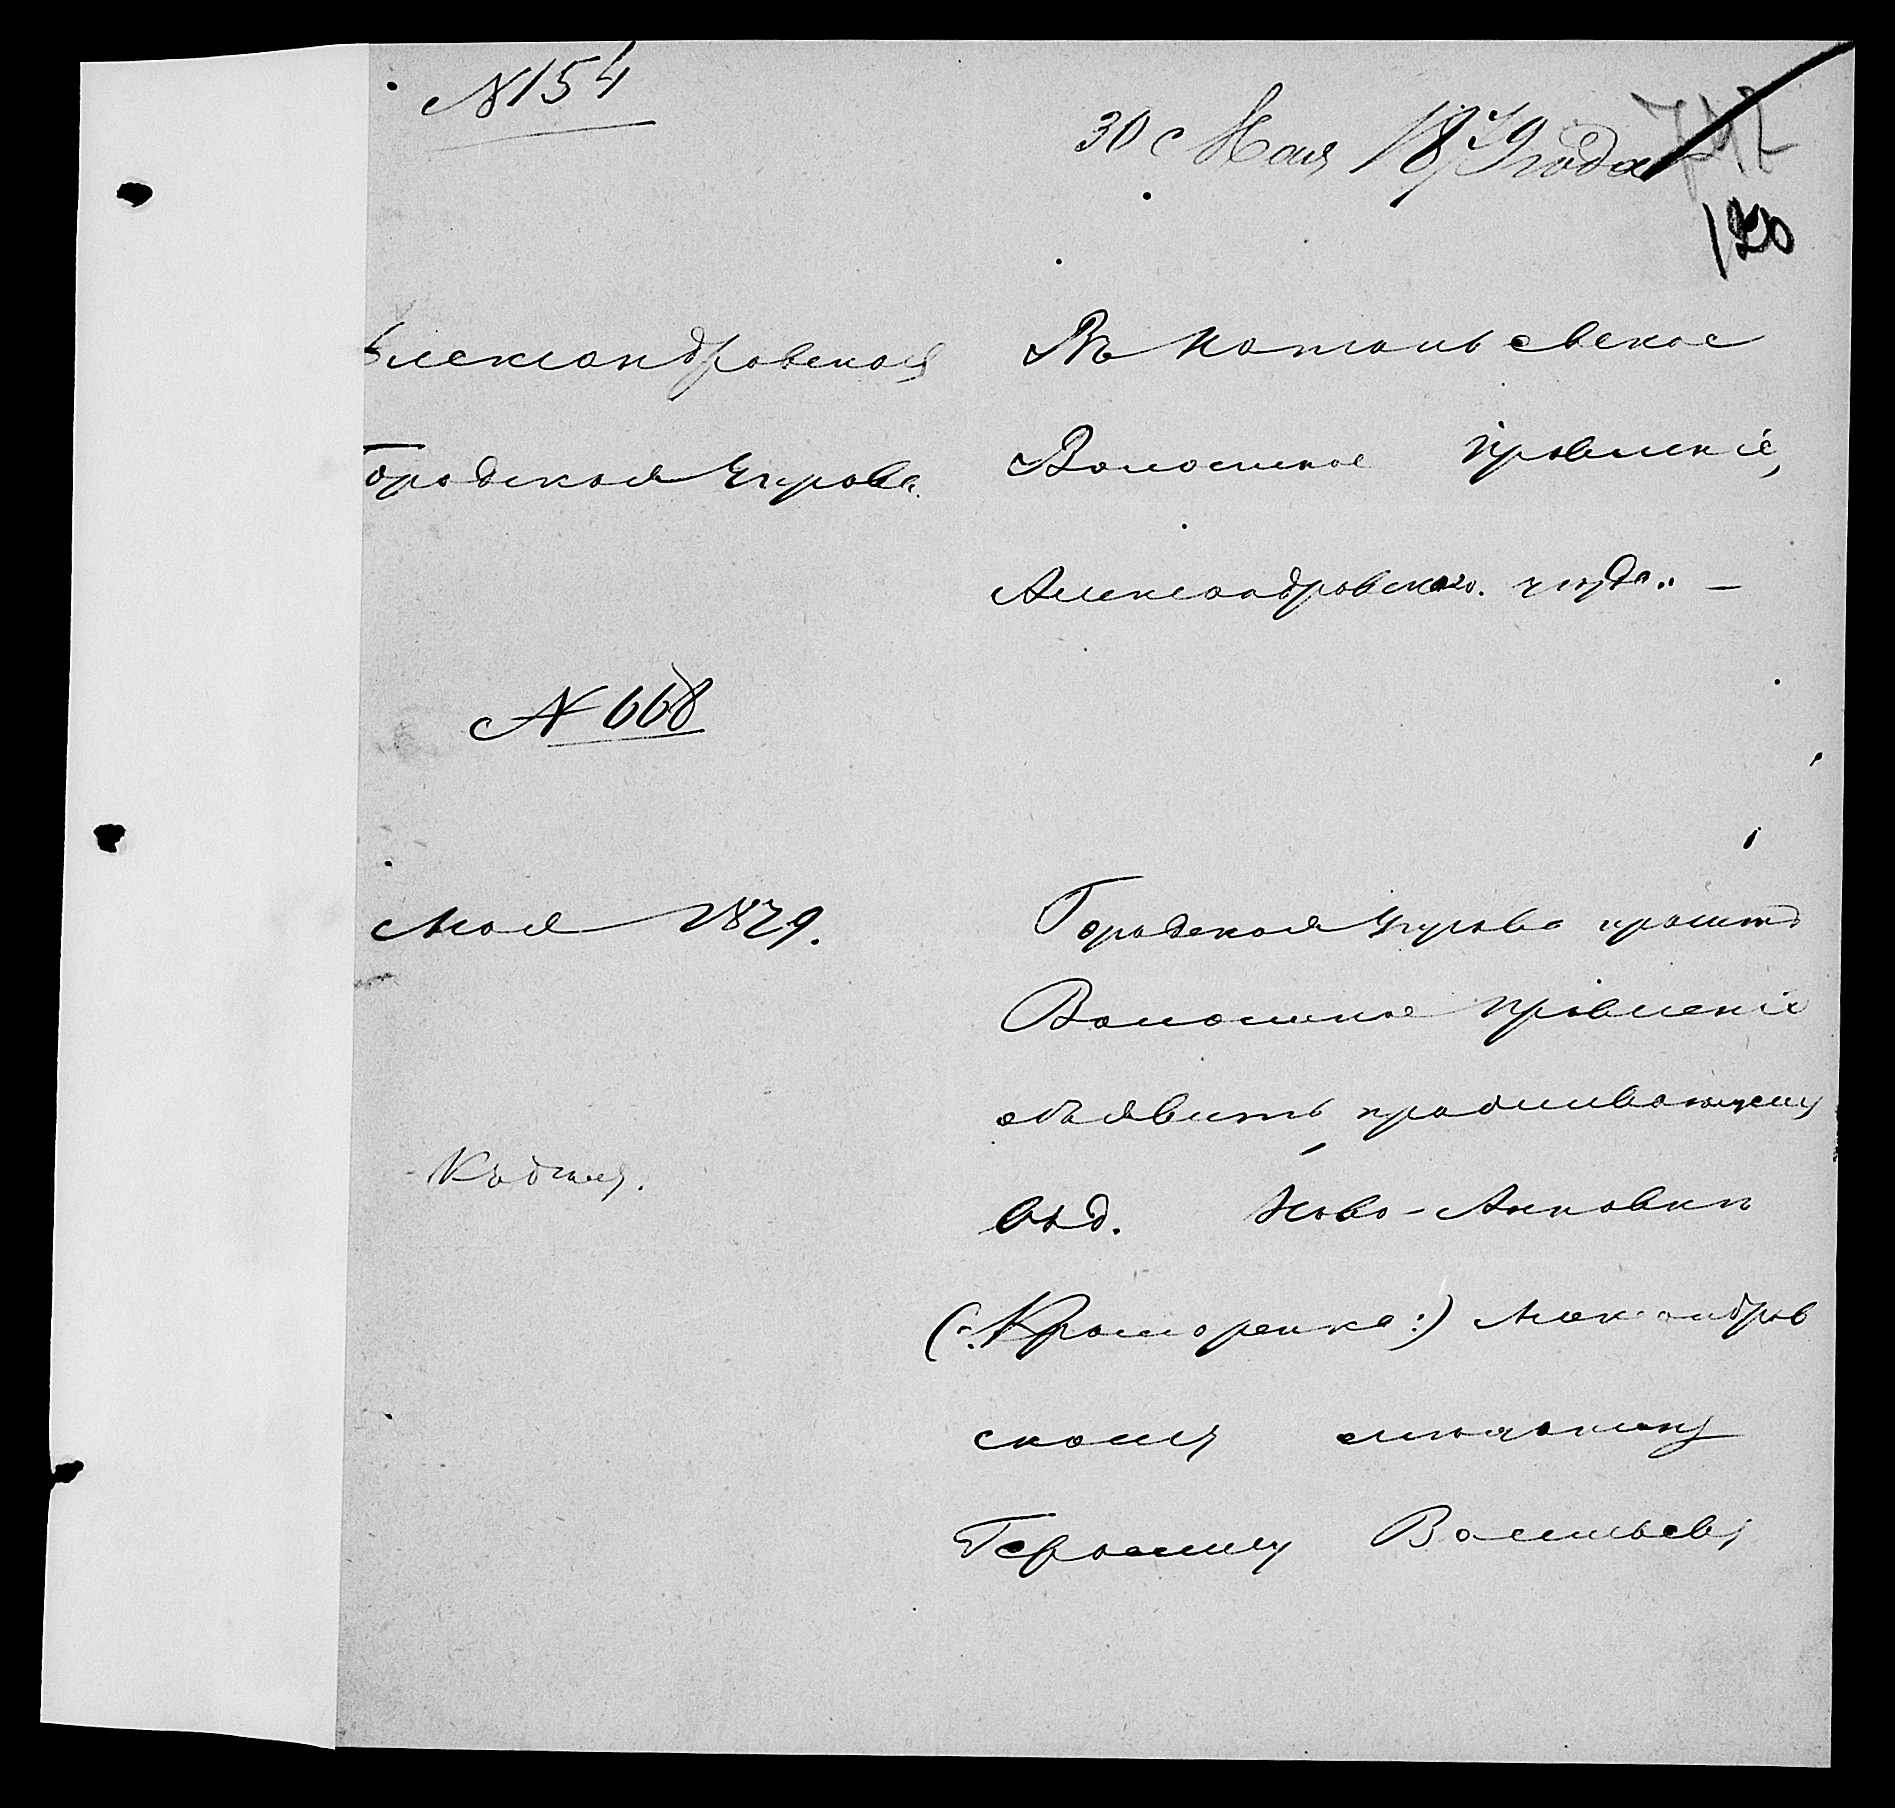 № 154
30 Мая 1879 года
120
Александровская
Городская Управа.
№ 668
Мая 1879.
Въ Натальевское
Волостное Правленіе,
Александровскаго. уѣзда. —
Городская Управа проситъ
Волостное Правленіе
объявить проживающему
въ д. Ново-Анновкѣ
(:Краморенка:) Александров
скому мѣщанину
Герасиму Васильеву